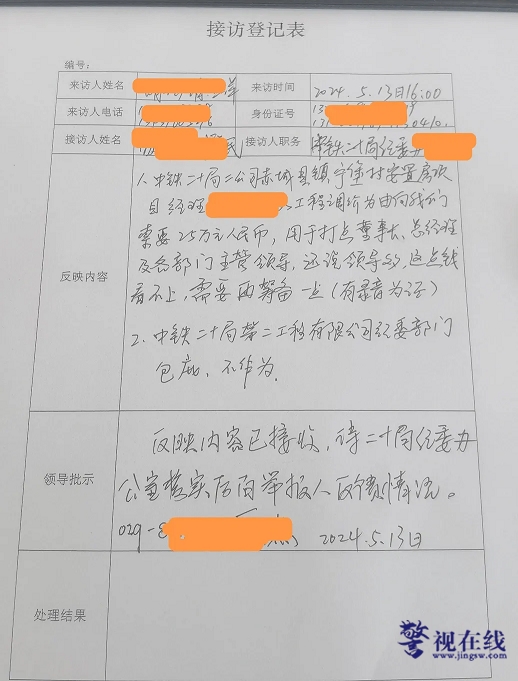 接访登记表
编号：
来访人姓名
来访时间 2024.5.13日16:00
来访人电话
身份证号
接访人姓名 民
接访人职务 中铁二十局纪委办
反映内容
1、中铁二十局二公司赤城县镇宁堡村安置房项
目经理 以工程调价为由向我们
索要25万元人民币，用于打点董事长、总经理
及各部门主管领导，还说领导的，这点钱
看不上，需要再筹备一点（有录音为证）
2、中铁二十局第二工程有限公司纪委部门
包庇、不作为。
领导批示
反映内容已接收，待二十局纪委办
公室落实后向举报人反馈情况。
029-8
2024.5.13日
处理结果
警视在线
www.jingsw.com